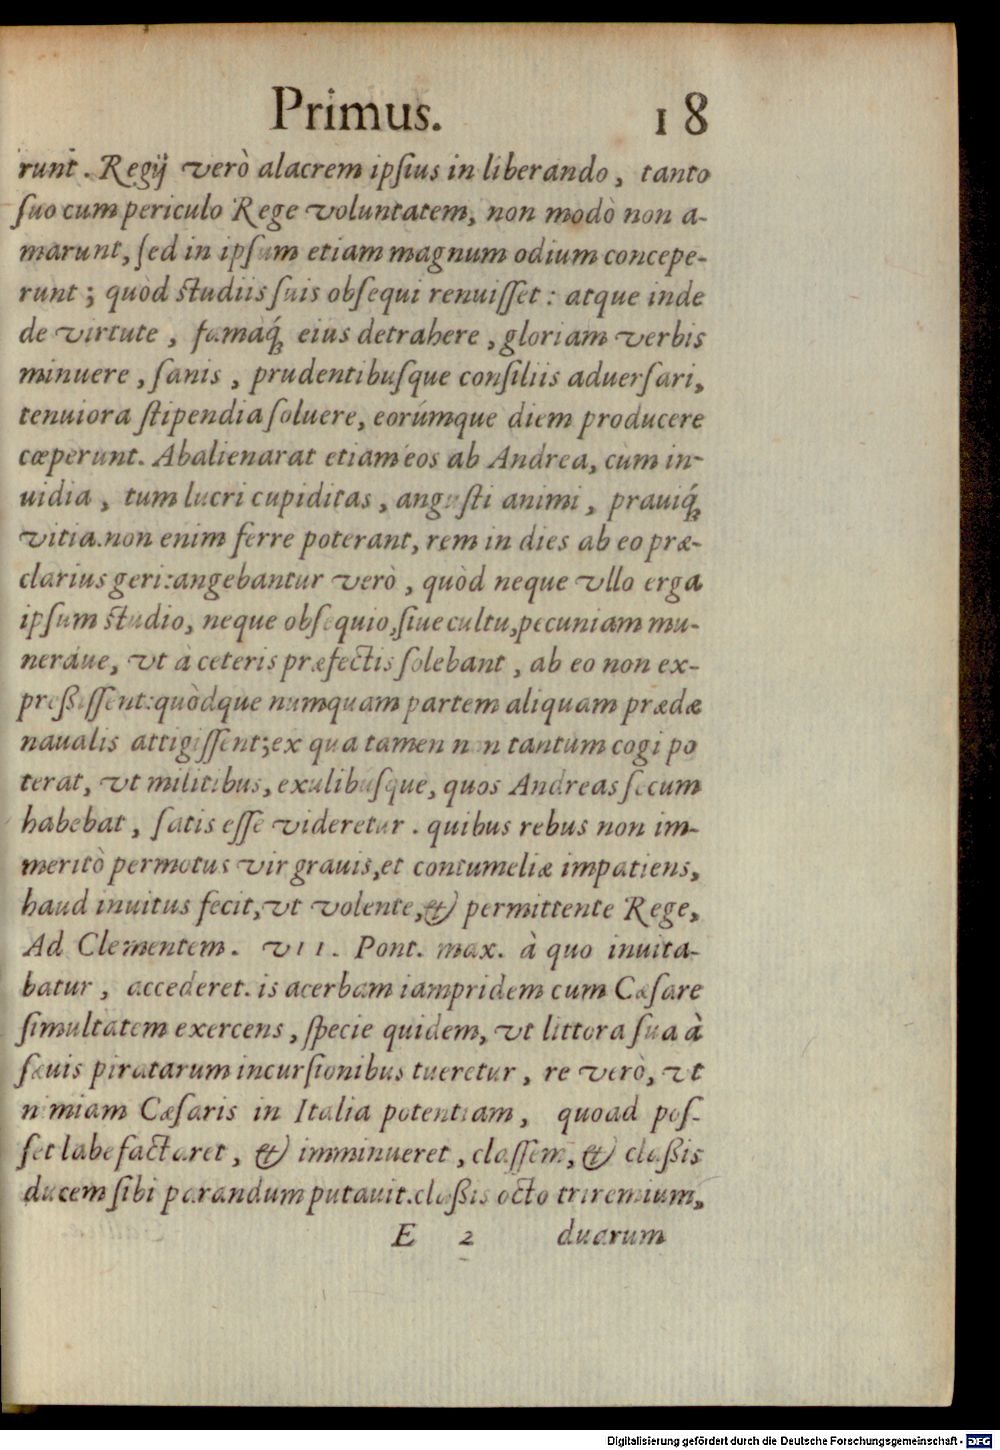 Primus. 18
runt. Regij verò alacrem ipſius in liberando, tanto
ſuo cum periculo Rege voluntatem, non modò non a-
marunt, ſed in ipſum etiam magnum odium concepe-
runt; quòd ſtudiis ſuis obſequi renuiſſet: atque inde
de virtute, famaq́; eius detrahere, gloriam verbis
minuere, ſanis, prudentibuſque conſiliis aduerſari,
tenuiora ſtipendia ſoluere, eorúmque diem producere
cœperunt. Abalienarat etiam éos ab Andrea, cùm in-
uidia, tum lucri cupiditas, anguſti animi, prauiq́;
vitia. non enim ferre poterant, rem in dies ab eo præ-
clarius geri: angebantur verò, quòd neque vllo erga
ipſum ſtudio, neque obſequio, ſiue cultu, pecuniam mu-
neráue, vt à ceteris præfectis ſolebant, ab eo non ex-
preßiſſent: quòdque numquam partem aliquam prædæ
naualis attigiſſent; ex qua tamen non tantum cogi po
terat, vt militibus, exulibuſque, quos Andreas ſecum
habebat, ſatis eſſe videretur. quibus rebus non im-
meritò permotus vir grauis, et contumeliæ impatiens,
haud inuitus fecit, vt volente, & permittente Rege,
Ad Clementem. VII. Pont. max. à quo inuita-
batur, accederet. is acerbam iampridem cum Cæſare
ſimultatem exercens, ſpecie quidem, vt littora ſua à
ſæuis piratarum incurſionibus tueretur, re verò, vt
nimiam Cæſaris in Italia potentiam, quoad poſ-
ſet labefactaret, & imminueret, claſſem, & claßis
ducem ſibi parandum putauit. claßis octo triremium,
E 2 duarum
Digitalisierung gefördert durch die Deutsche Forschungsgemeinschaft - DFG